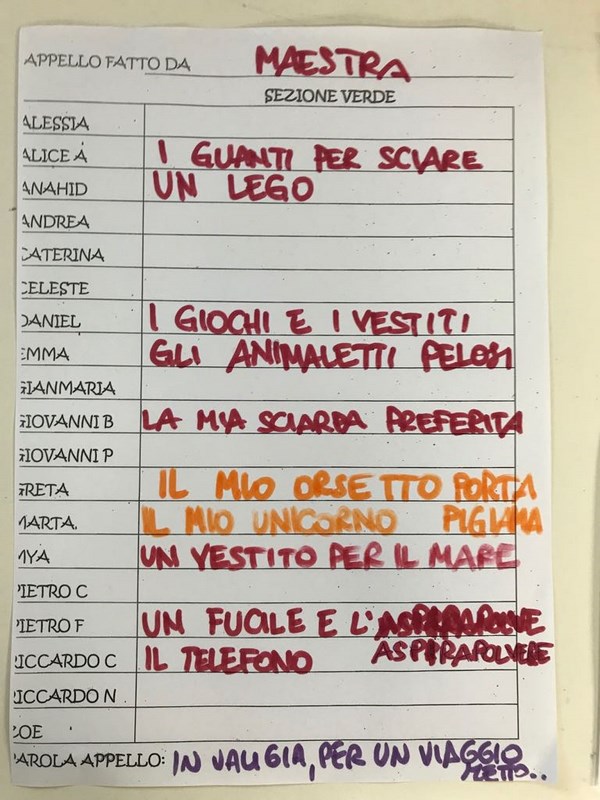 APPELLO FATTO DA MAESTRA
SEZIONE VERDE
ALESSIA
ALICE A I GUANTI PER SCIARE
ANAHID UN LEGO
ANDREA
CATERINA
CELESTE
DANIEL I GIOCHI E I VESTITI
EMMA GLI ANIMALETTI PELOSI
GIANMARIA
GIOVANNI B LA MIA SCIARPA PREFERITA
GIOVANNI P
GRETA IL MIO ORSETTO PORTA
MARTA. IL MIO UNICORNO PIGIAMA
MYA UN VESTITO PER IL MARE
PIETRO C
PIETRO F UN FUCILE E L'ASPIRAPOLVE
ASPIRAPOLVERE
RICCARDO C IL TELEFONO
RICCARDO N
ZOE
PAROLA APPELLO: IN VALIGIA, PER UN VIAGGIO
METTO..